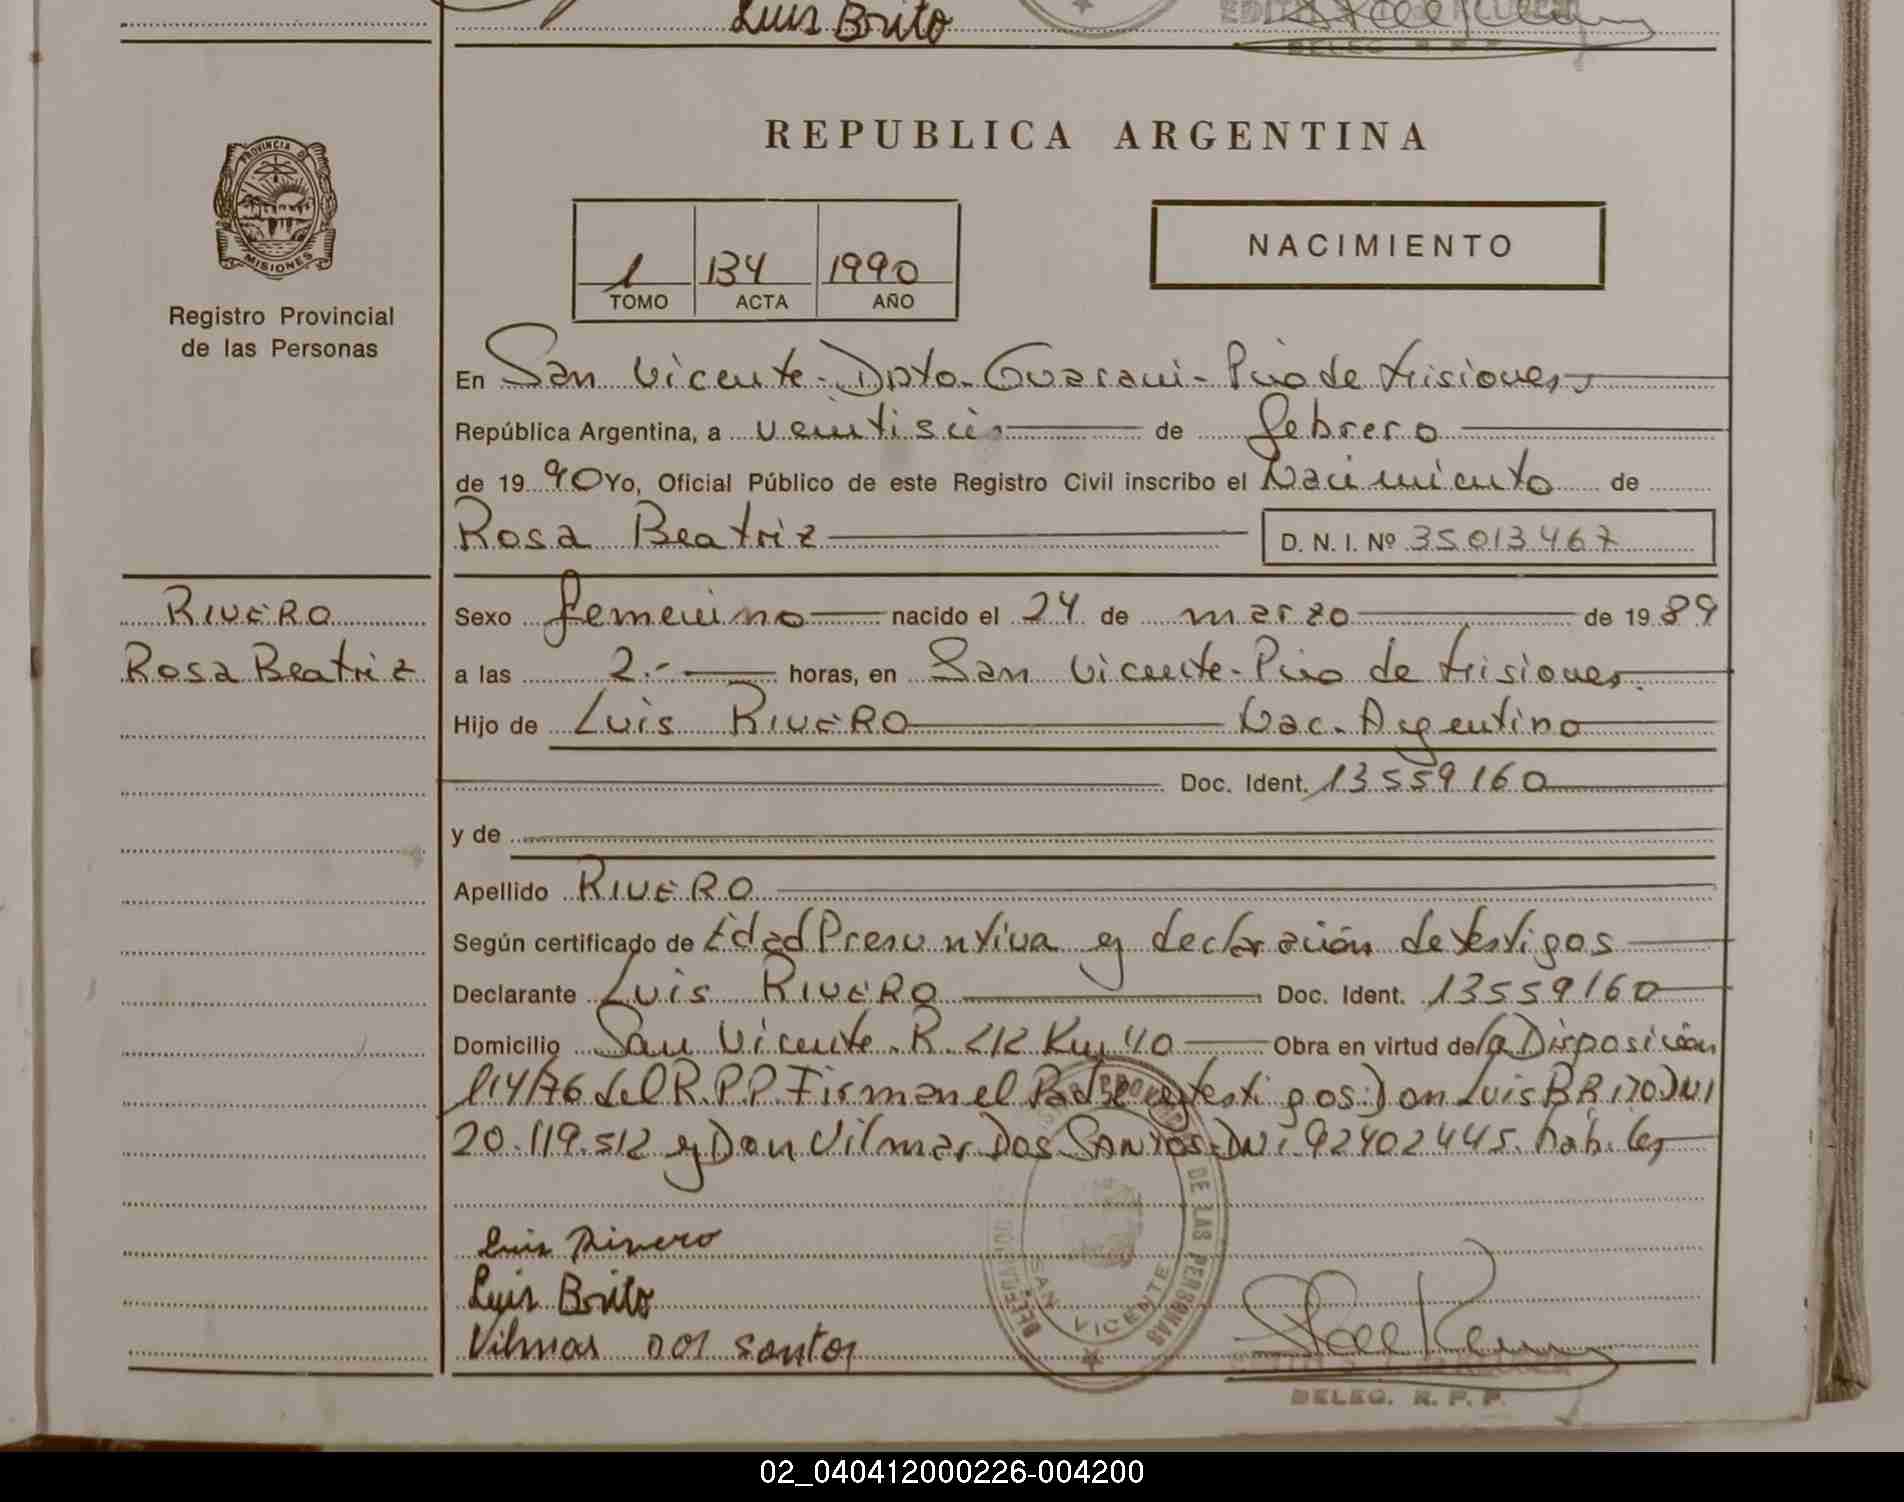 Luis Brito
DELEG. R. P. P.
REPUBLICA ARGENTINA
PROVINCIA DE
MISIONES
Registro Provincial
de las Personas
NACIMIENTO
1 134 1990
TOMO ACTA AÑO
En San Vicente - Dpto. Guarani - Pcia de Misiones
República Argentina, a veintiseis de febrero
de 19 90 Yo, Oficial Público de este Registro Civil inscribo el Nacimiento de
Rosa Beatriz D. N. I. Nº 35013467
RIVERO
Rosa Beatriz
Sexo femenino nacido el 24 de marzo de 19 89
a las 2.- horas, en San Vicente - Pcia de Misiones.
Hijo de Luis RIVERO Nac. Argentino
Doc. Ident. 13559160
y de
Apellido RIVERO
Según certificado de Edad Presuntiva y declaración de testigos
Declarante Luis RIVERO Doc. Ident. 13559160
Domicilio San Vicente. R. 212 Km 40 Obra en virtud de la Disposición
114/76 del R.P.P. Firman el Padre y testigos: Don Luis BRITO DNI
20.119.512 y Don Vilmar Dos SANTOS - DNI 92402445. habiles
Luis Rivero
Luis Brito
Vilmar dos santos
DE LAS PERSONAS
SAN VICENTE
DELEG. R. P. P.
02_040412000226-004200